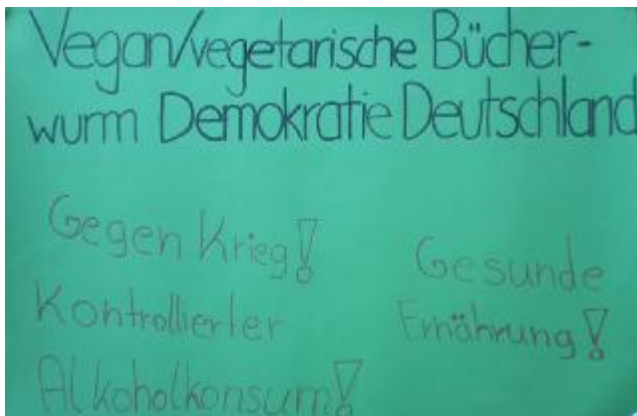 Vegan/vegetarische Bücher-
wurm Demokratie Deutschland
Gegen Krieg!
Kontrollierter
Alkoholkonsum!
Gesunde
Ernährung!